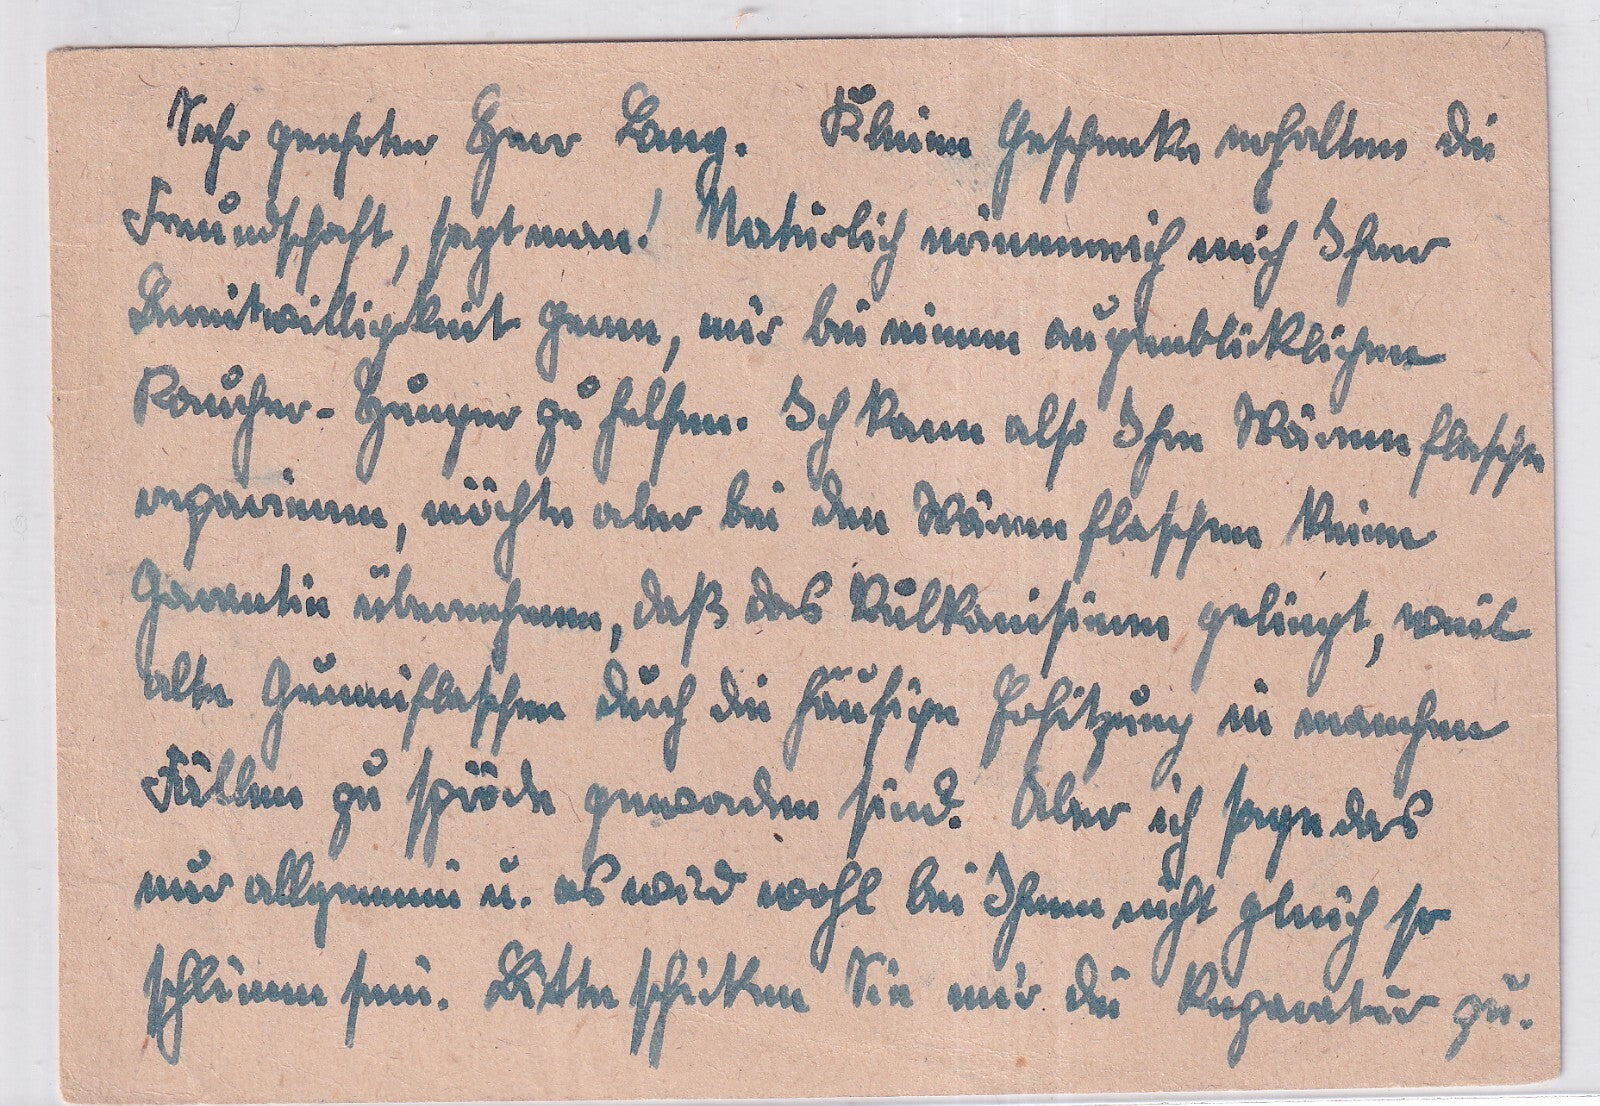 Sehr geehrter Herr Lang. Kleine Geschenke erhalten die
Freundschaft, sagt man! Natürlich erinnere ich mich Ihrer
Bereitwilligkeit gerne, mir bei einem augenblicklichen
Raucher-Hunger zu helfen. Ich kann also Ihre Wärmeflasche
reparieren, möchte aber bei den Wärmeflaschen keine
Garantie übernehmen, daß das Vulkanisieren gelingt, weil
alte Gummiflaschen durch die häufige Erhitzung in manchen
Fällen zu spröde geworden sind. Aber ich sage das
nur allgemein u. es wird wohl bei Ihnen nicht gleich so
schlimm sein. Bitte schicken Sie mir die Reparatur zu.